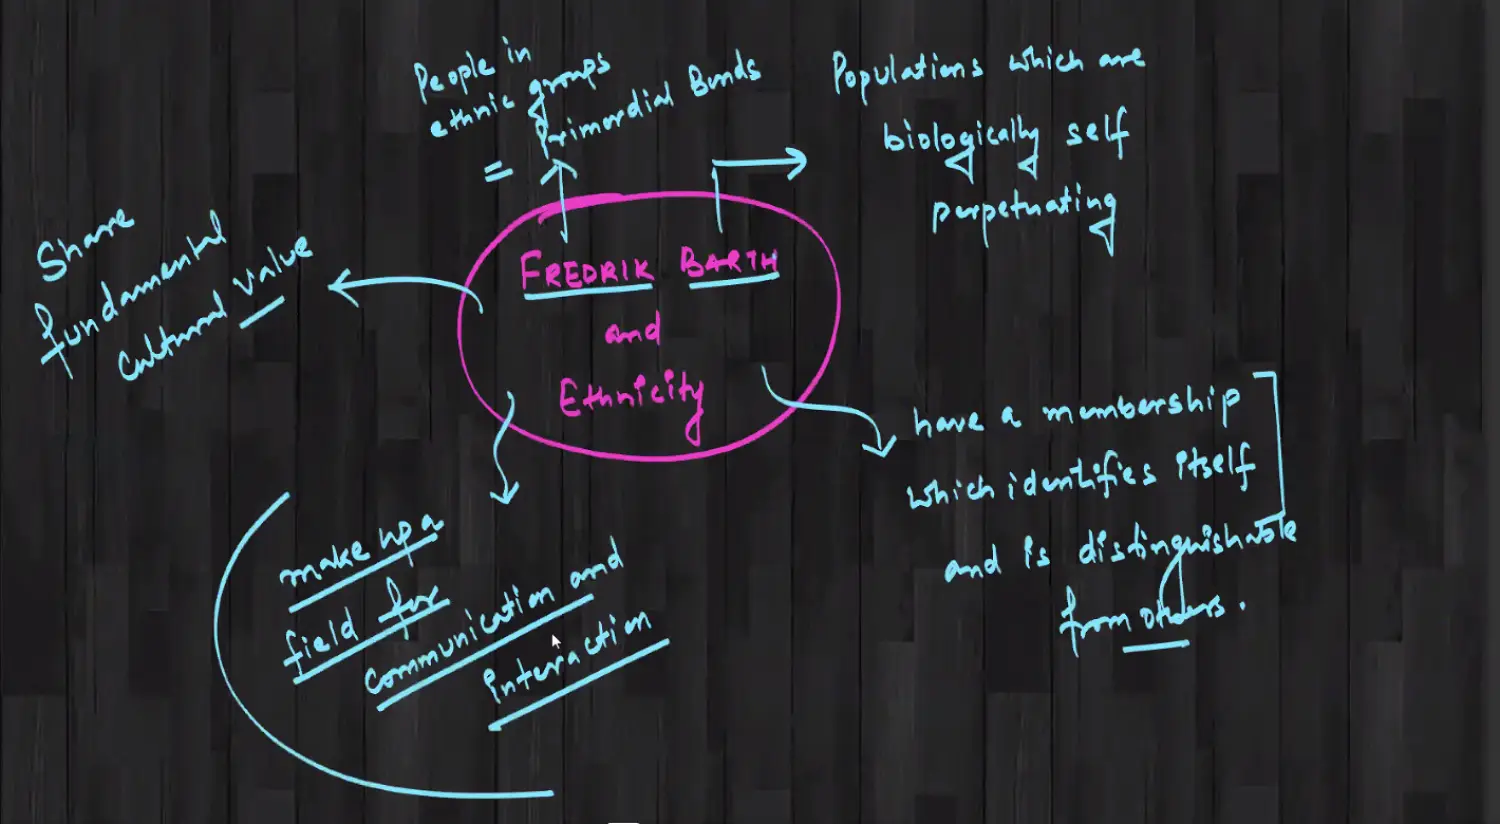 People in
ethnic groups
= Primordial Bonds
Populations which are
biologically self
perpetuating
Share
fundamental
cultural value
FREDRIK BARTH
and
Ethnicity
have a membership
which identifies itself
and is distinguishable
from others.
make up a
field for
communication and
interaction